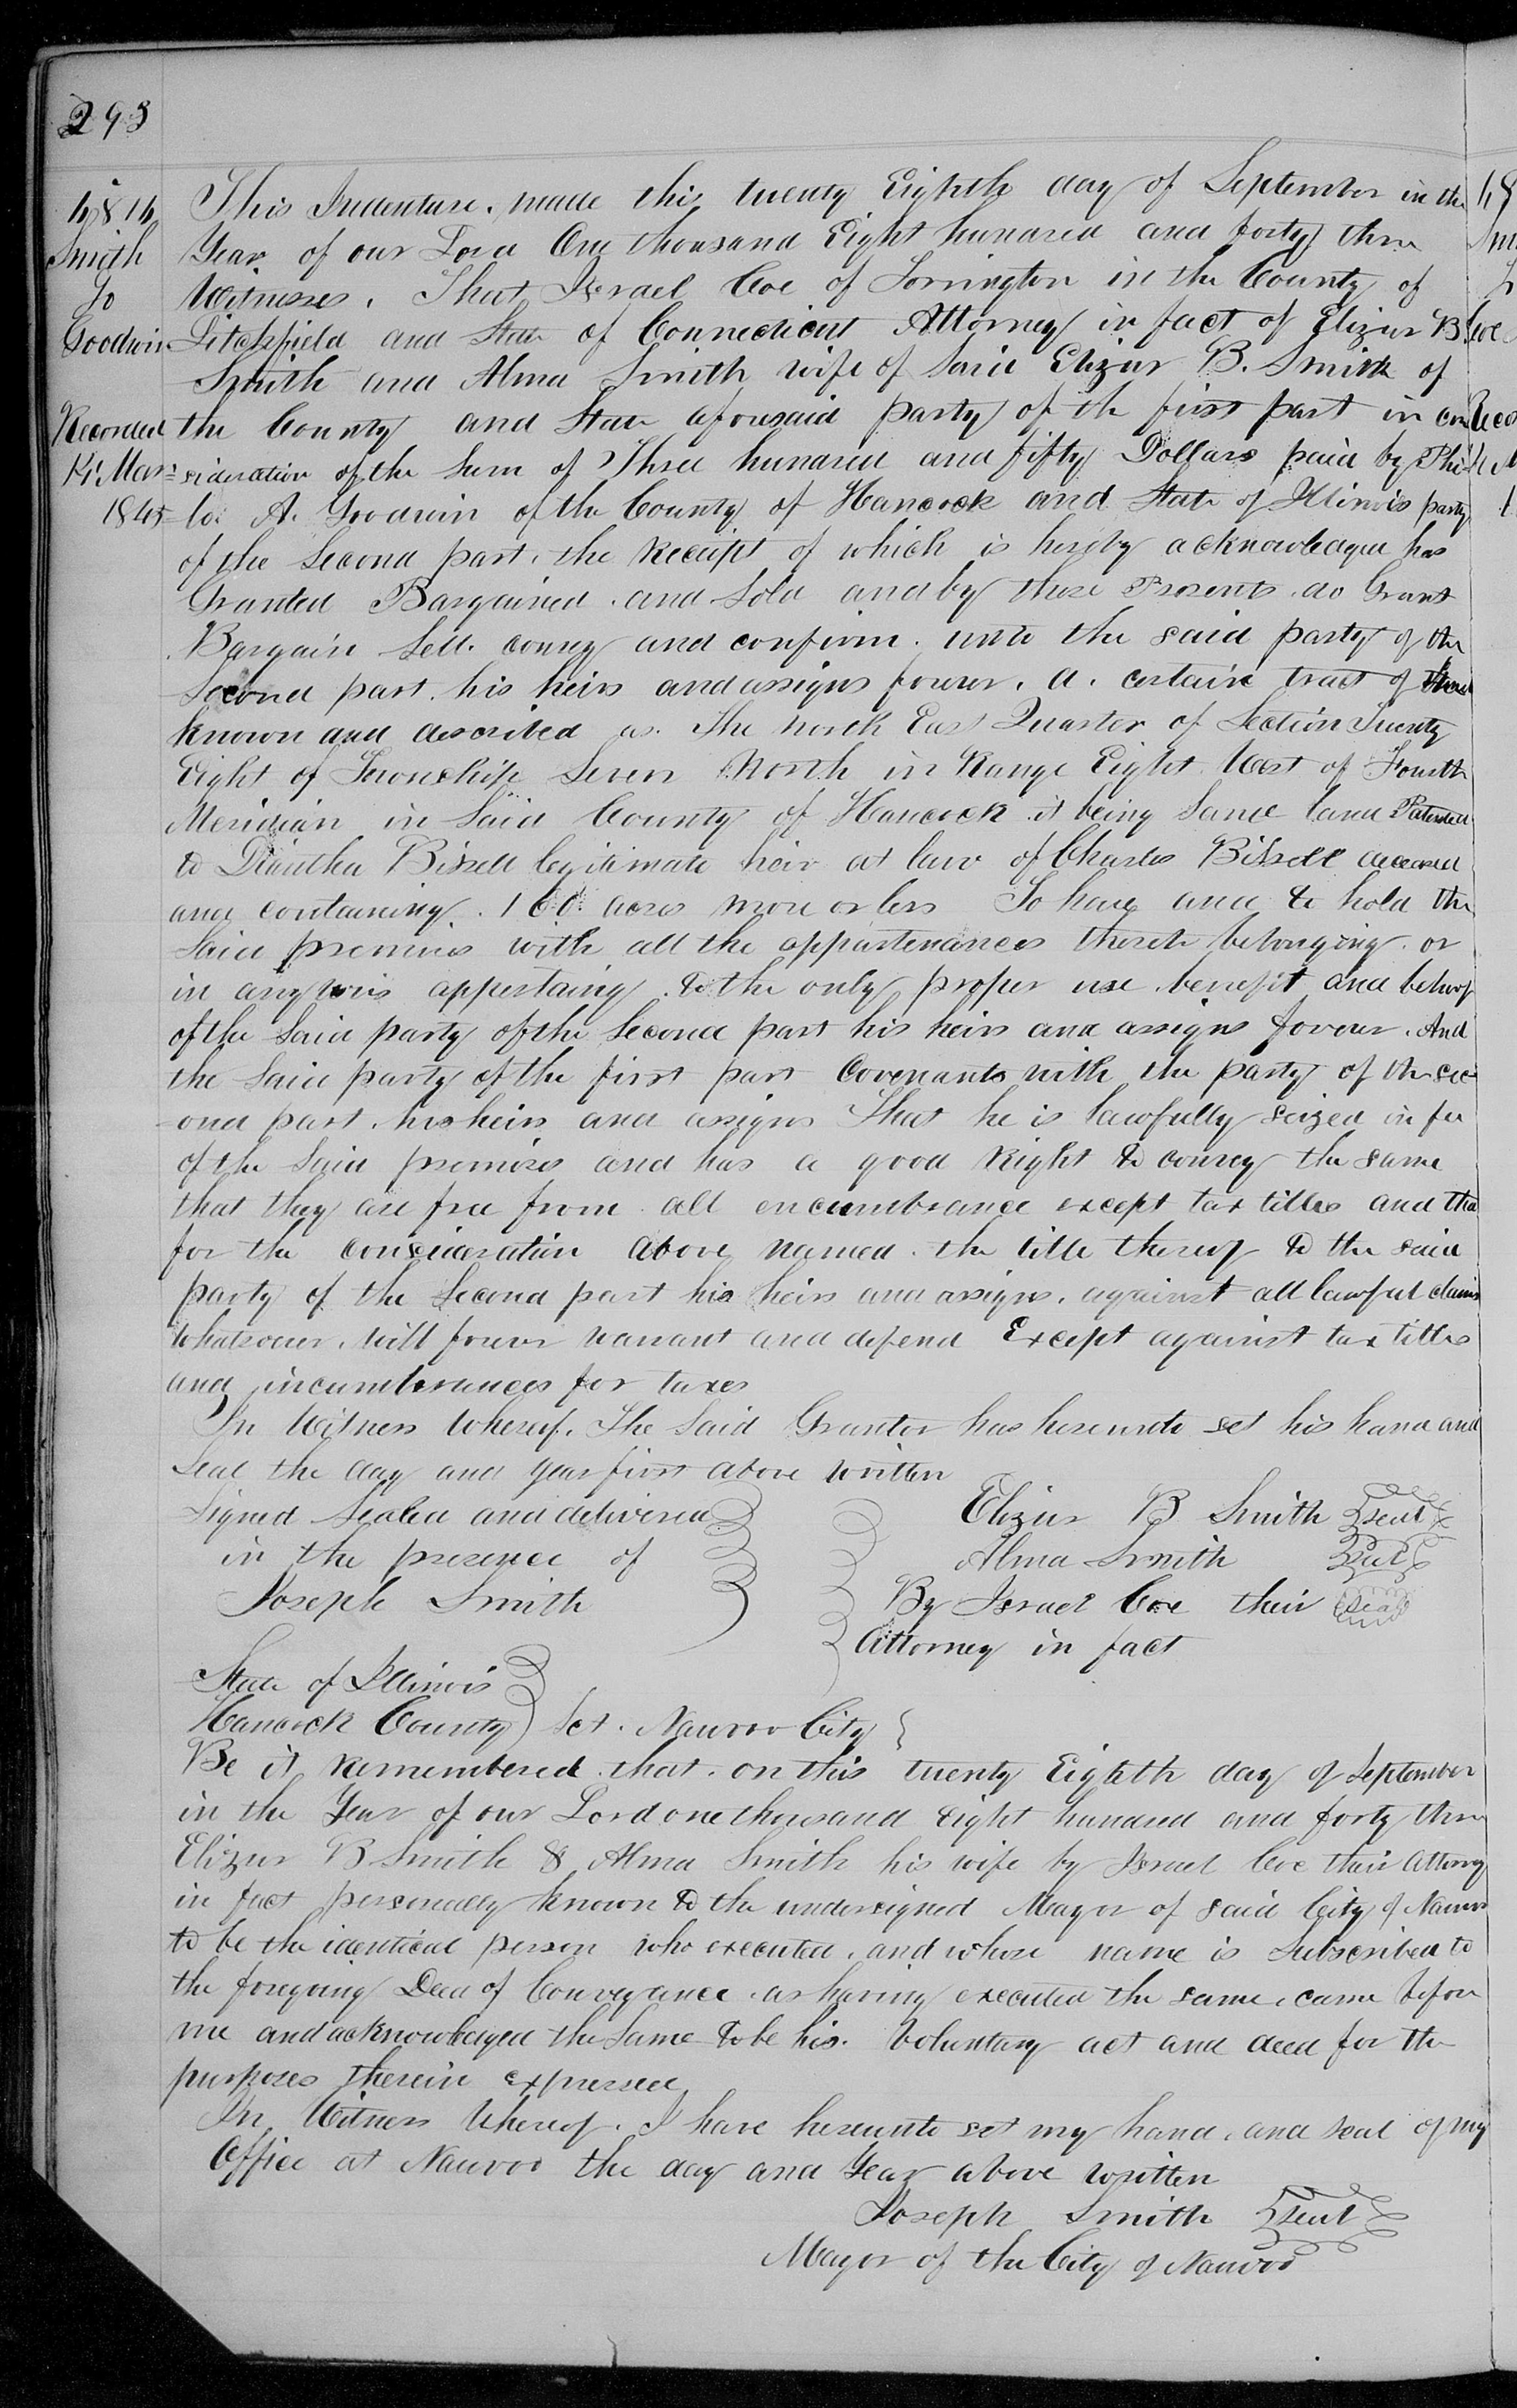 293
4814
Smith
To
Goodwin
Recorded
14 Mar
1845
This Indenture. made this twenty Eighth day of September in the
Year of our Lord One thousand Eight hundred and forty three
Witnesses. That Israel Coe of Torrington in the County of
Litchfield and State of Connecticut Attorney in fact of Elizur B.
Smith and Alma Smith wife of said Elizur B. Smith of
the County and State aforesaid party of the first part in con
sideration of the Sum of Three hundred and fifty Dollars paid by Phi
lo. A. Goodwin of the County of Hancock and State of Illinois party
of the Second part, the Receipt of which is hereby acknowledged has
Granted Bargained and Sold and by these Presents do Grant
Bargain Sell. convey and confirm. unto the said party of the
Second part. his heirs and assigns forever. a. certain tract of
known and described as. The North East Quarter of Section Twenty
Eight of Township Seven North in Range Eight West of Fourth
Meridian in Said County of Hancock it being Same land Patented
to Diantha Bissell legitimate heir at law of Charles Bissell deceased
and containing. 160. acres more or less To have and to hold the
Said premises with all the appurtenances thereto belonging. or
in anywise appertaing to the only proper use benefit and behoof
of the Said party of the Second part his heirs and assigns forever. And
the Said party of the first part Covenants with the party of the sec
ond part. his heirs and assigns That he is lawfully seized in fee
of the Said premises and has a good Right to convey the same
that they are free from all encumbrance except tax titles and tha
for the consideration above named. the title thereof to the said
party of the Second part his heirs and assigns. against all lawful claims
Whatsoever. will forever warrant and defend Except against tax titles
and incumbrances for taxes
In Witness Whereof. The Said Grantor has hereunto set his hand and
Seal the day and year first above written
Signed Sealed and delivered
in the presence of
Joseph Smith
Elizur B Smith seal
Alma Smith seal
By Israel Coe their seal
Attorney in fact
State of Illinois
Hancock County Sct. Nauvoo City
Be it Remembered that. on this twenty Eighth day of September
in the Year of our Lord one thousand eight hundred and forty three
Elizur B Smith & Alma Smith his wife by Israel Coe their Attorney
in fact personally known to the undersigned Mayor of said City of Nauvoo
to be the identical person who executed. and whose name is Subscribed to
the foregoing Deed of Conveyance. as having executed the same. came before
me and acknowledged the Same to be his. Voluntary act and deed for the
purposes therein expressed
In Witness Whereof. I have hereunto set my hand. and seal of my
Office at Nauvoo the day and Year above written
Joseph Smith seal
Mayor of the City of Nauvoo